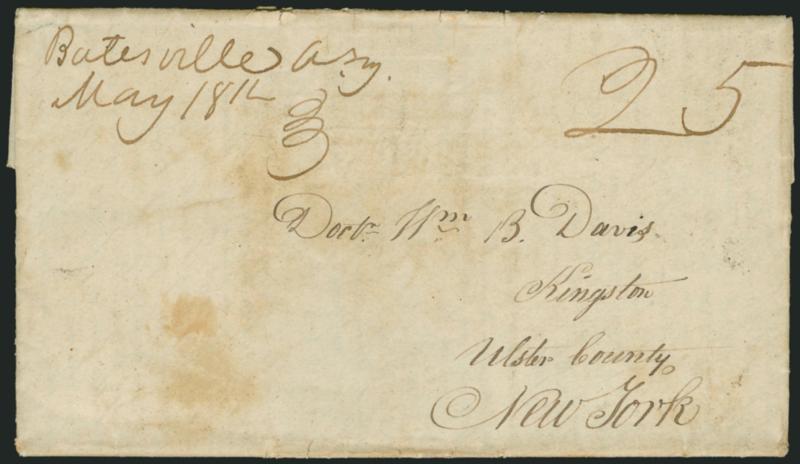 Batesville A.Ty.
May 18th
25
Doctr. Wm B. Davis
Kingston
Ulster County
New York